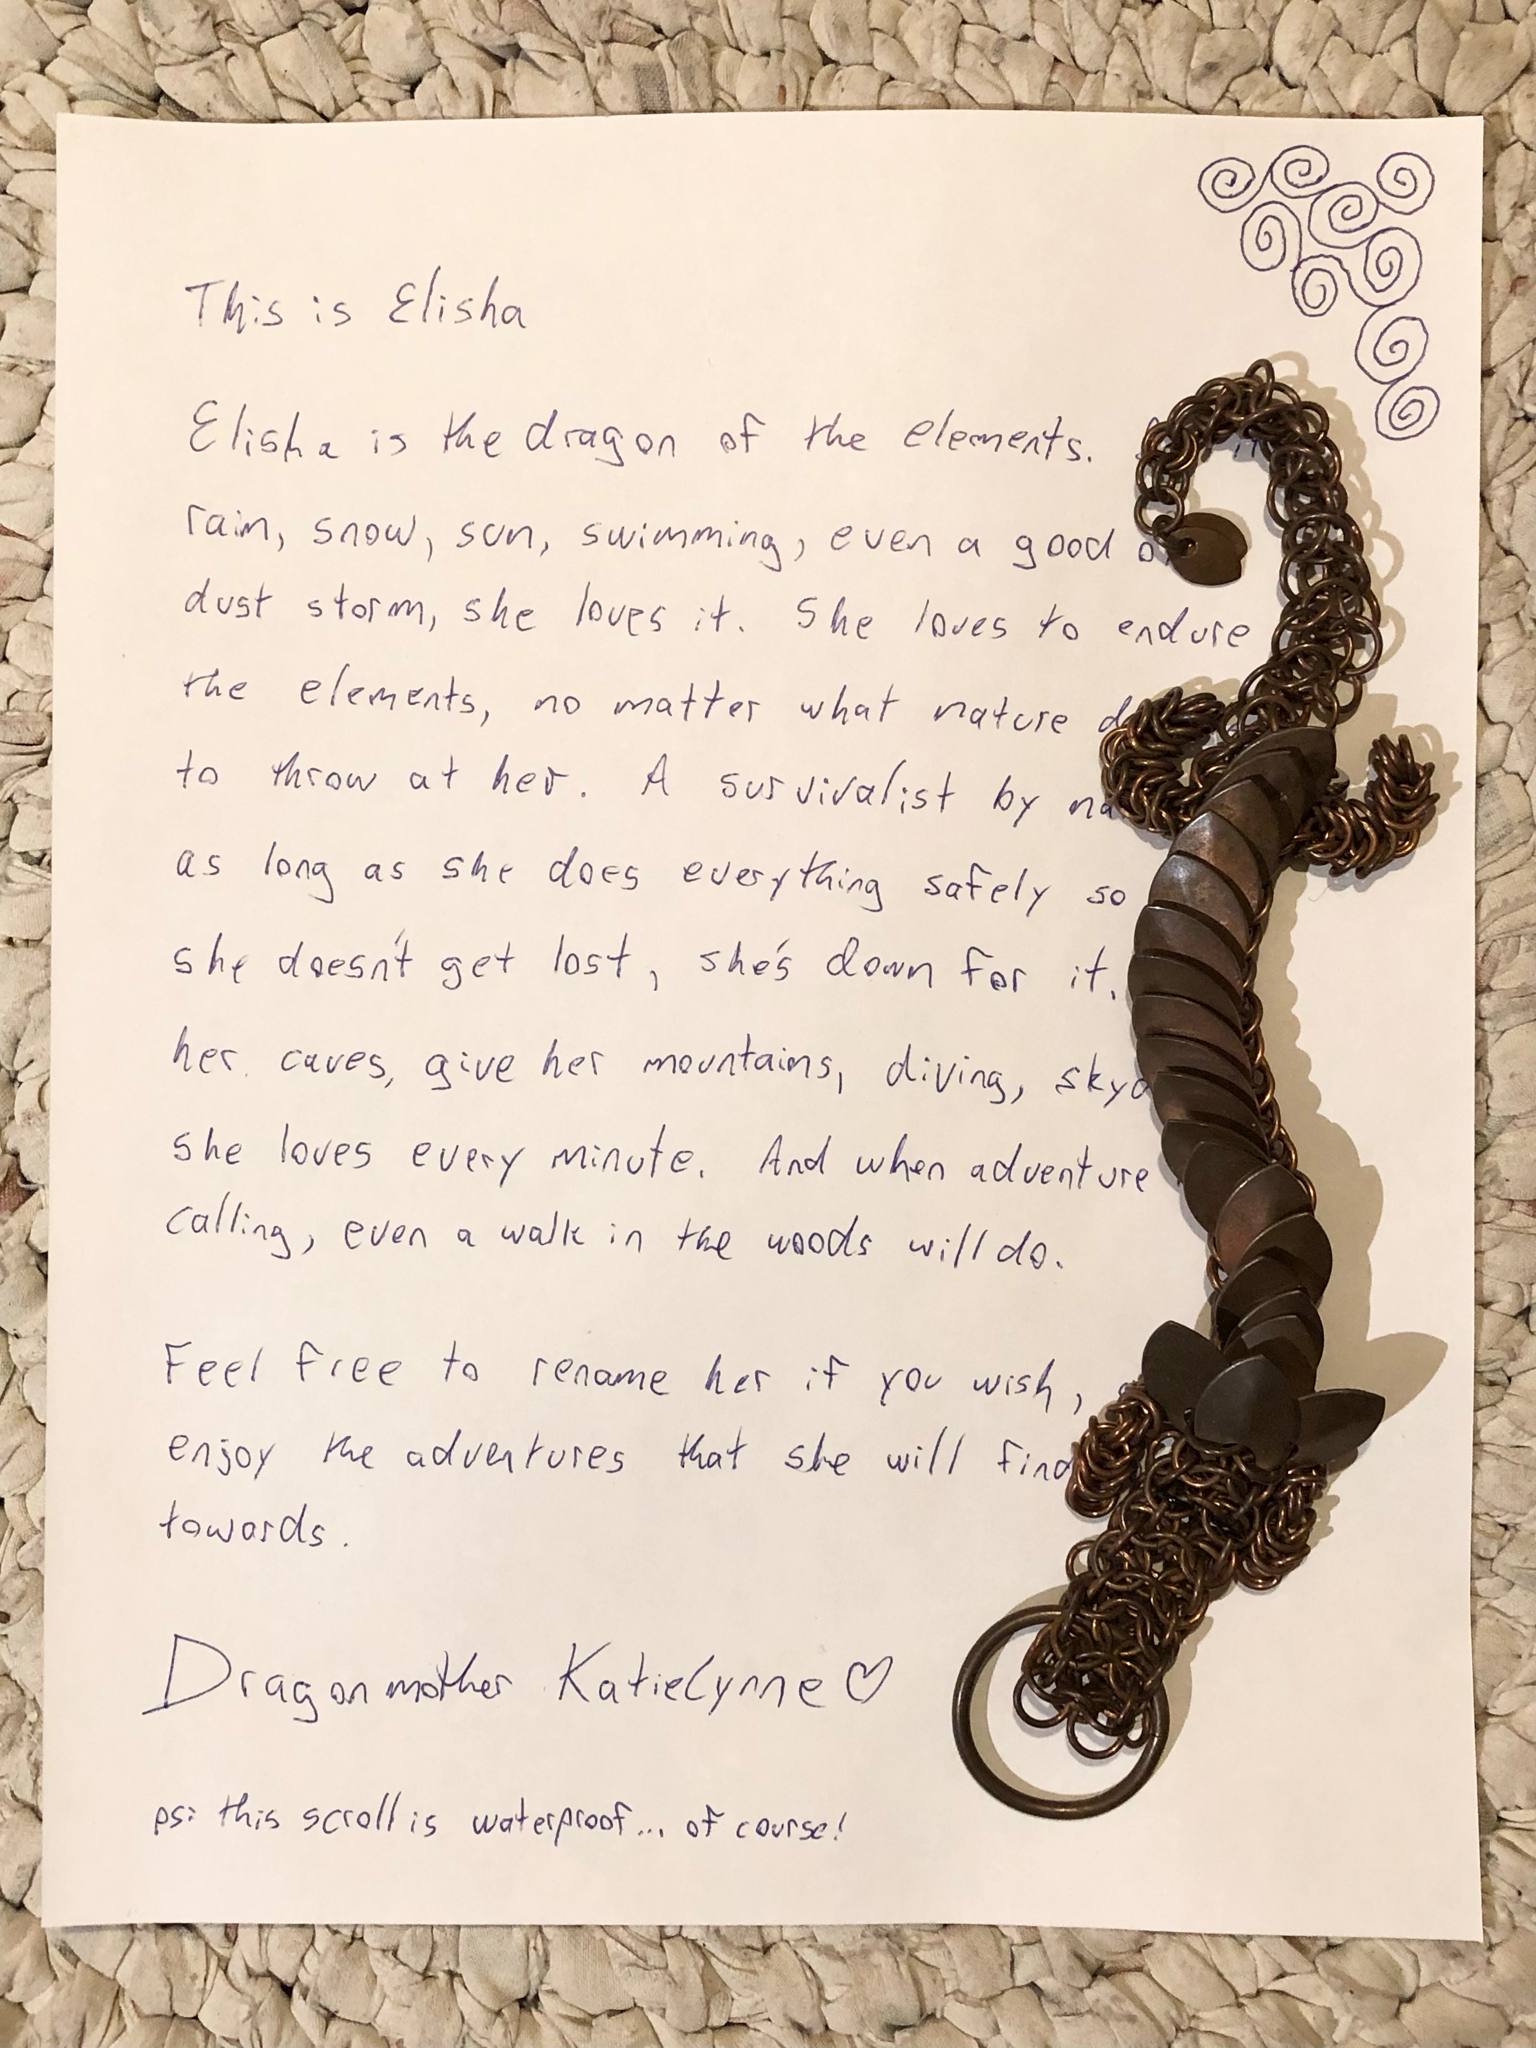 This is Elisha
Elisha is the dragon of the elements.
rain, snow, sun, swimming, even a good
dust storm, she loves it. She loves to endure
the elements, no matter what nature
to throw at her. A survivalist by
as long as she does everything safely so
she doesn't get lost, she's down for it.
her caves, give her mountains, diving,
she loves every minute. And when adventure
calling, even a walk in the woods will do.
Feel free to rename her if you wish,
enjoy the adventures that she will find
towards.
Dragonmother KatieLynne♡
ps: this scroll is waterproof... of course!